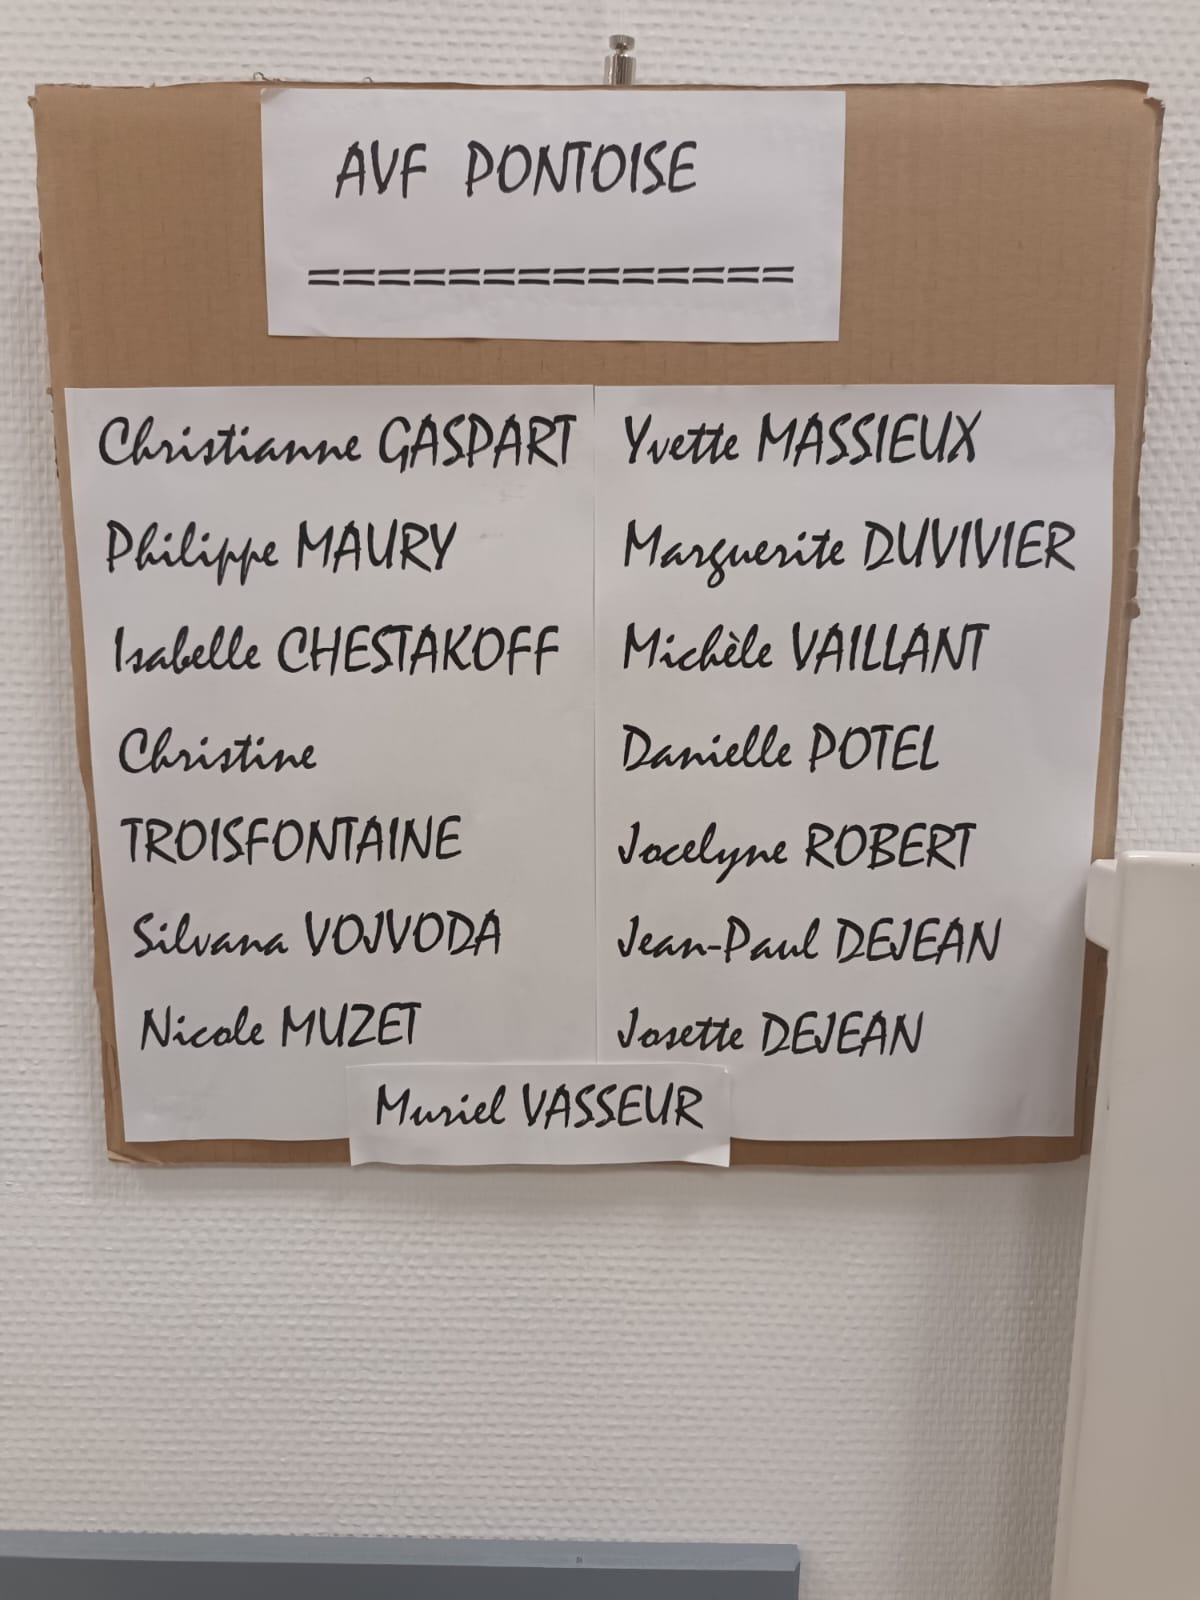 AVF PONTOISE
==============
Christianne GASPART
Philippe MAURY
Isabelle CHESTAKOFF
Christine
TROISFONTAINE
Silvana VOJVODA
Nicole MUZET
Yvette MASSIEUX
Marguerite DUVIVIER
Michèle VAILLANT
Danielle POTEL
Jocelyne ROBERT
Jean-Paul DEJEAN
Josette DEJEAN
Muriel VASSEUR